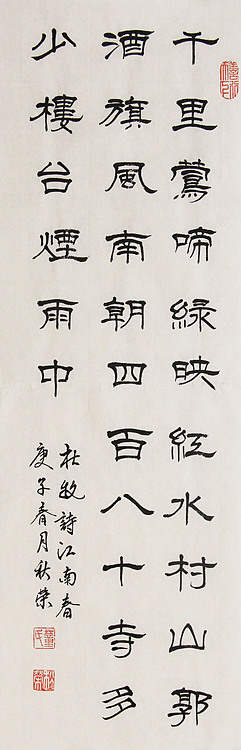 千里鶯啼緑映紅水村山郭
酒旗風南朝四百八十寺多
少樓台煙雨中
杜牧詩江南春
庚子春月秋榮